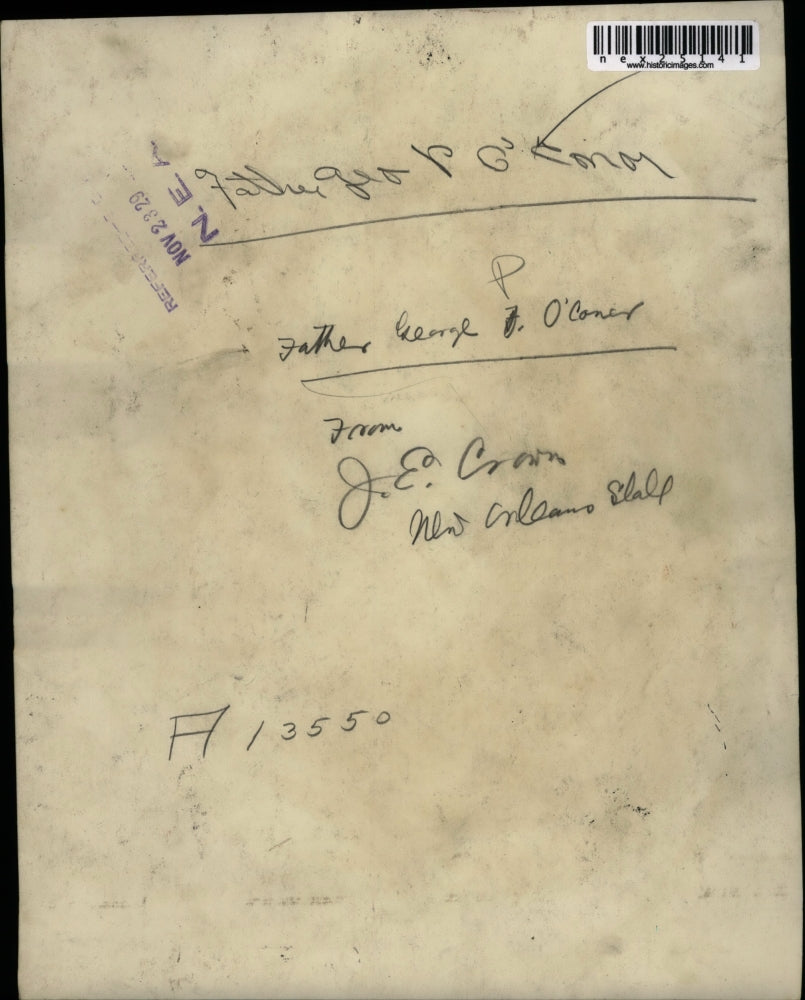 nex25141
www.historicimages.com
Father Geo P O'Conor
N. E. A.
NOV 23 29
P
Father George F. O'Coner
From
J. E. Crown
New Orleans State
A 13550